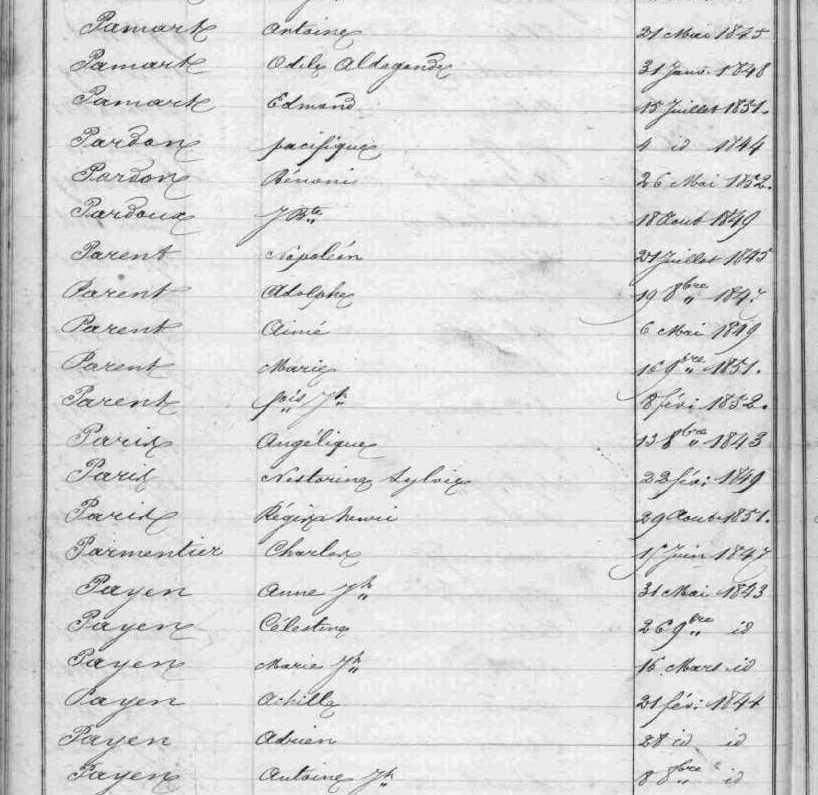 Pamart Antoine 21 Mai 1845
Pamart Odile Aldegonde 31 Janv. 1848
Pamart Edmond 15 Juillet 1851.
Pardon pacifique 4 id 1844
Pardon Bénoni 26 Mai 1852.
Pardoux J Bte 18 Aout 1849
Parent Napoléon 21 Juillet 1845
Parent Adolphe 19 8bre 1847
Parent Aimé 6 Mai 1849
Parent Marie 16 9bre 1851.
Parent fois Jh 8 févr 1852.
Paris Angélique 13 8bre 1843
Paris Nestorine Sylvie 22 fév: 1849
Paris Régis henri 29 Aout 1851.
Parmentier Charles 15 Juin 1847
Payen Anne Jh 31 Mai 1843
Payen Célestine 26 9bre id
Payen Marie Jh 16 Mars id
Payen Achille 21 fév: 1844
Payen Adrien 28 id id
Payen Antoine Jh 8 8bre id